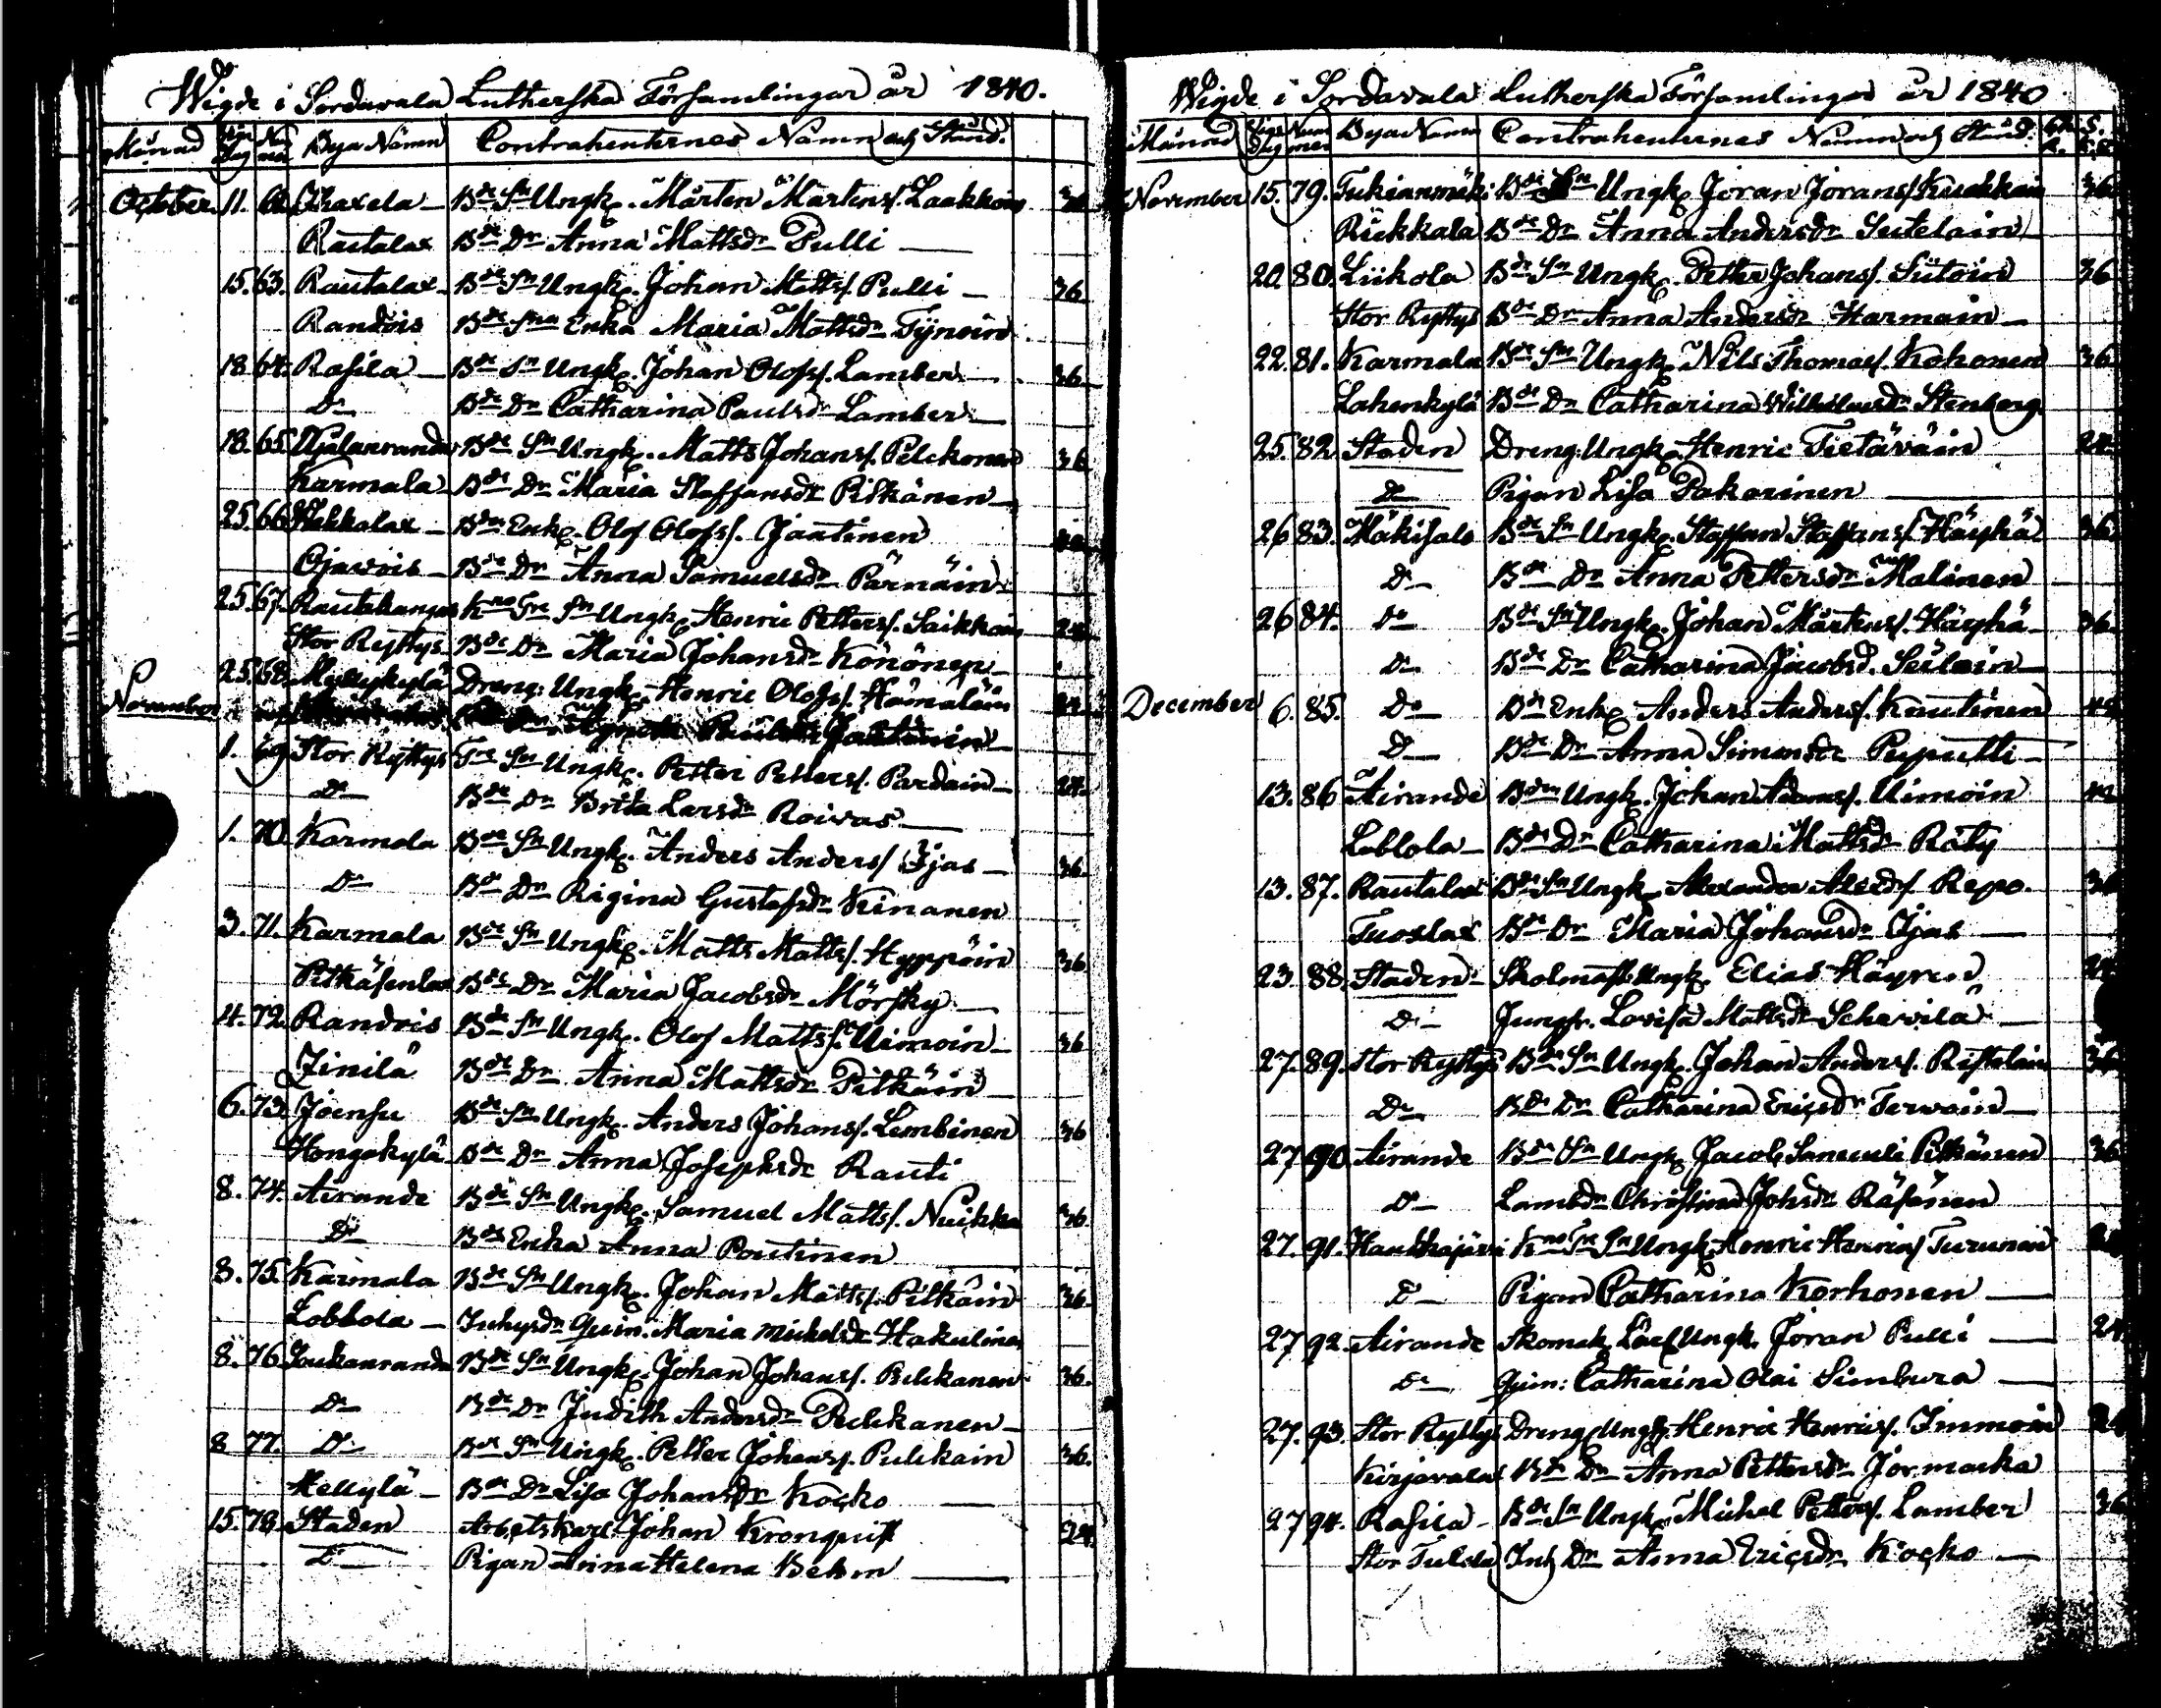 Wigde i Sordavala Lutherska Församlingar år 1840.
Månad Dag Byanamn Contrahenternes Namn och Stånd.
October. 11. Bde Sn Ungk. Mårten Mårtens/. Laakkoin 36
Rautalax Bde Dn Anna Mattsdr Pulli
15. 63. Rautalax Bde Sn Ungk. Johan Matts/. Pulli 36.
Randois Enka Maria Mattsdr Tynoin
18. 64. Rasila Bde Sn Ungk. Johan Olofs/. Lamber 36
Do Bde Dn Catharina Paulsdr Lamber
18. 65. Bde Sn Ungk. Matts Johans/. Pelckonen 36
Karmala Bde Dn Maria Staffansdr Pitkänen
25. 66. Enkg. Olof Olofs/. Jaatinen
Ojavois Bde Dn Anna Samuelsdr Pärnäin
25. 67. Rautakangas Sn Ungk. Henric Petters/. Saikkoin 24
Stor Ryttys Bde Dn Maria Johansdr Könönen
25. 68. Myllykylä Dreng. Ungk. Henric Olofs/. Hämäläin 24
November
1. 69. Stor Ryttys Sn Ungk. Petter Petters/. Pardain 24
Do Bde Dn Brita Larsdr Roivas
1. 70. Karmala Bde Sn Ungk. Anders Anders/. Ijas 36
Do Bde Dn Regina Gustafsdr Kinanen
3. 71. Karmala Bde Sn Ungk. Matts Matts/. Hyppöin 36
Bde Dn Maria Jacobsdr Mörsky
4. 72. Randois Bde Sn Ungk. Olof Matts/. Uimoin 36
Zinilä Bde Dn Anna Mattsdr Pitkäin
6. 73. Joensu Bde Sn Ungk. Anders Johans/. Lembinen 36
Hongakylä Bde Dn Anna Josephsdr Rauti
8. 74. Airande Bde Sn Ungk. Samuel Matts/. Nuikka 36
Do Enka Anna Poutinen
8. 75. Karmala Bde Sn Ungk. Johan Matts/. Pitkäin 36.
Lobbola Inhysdr Quin. Maria Mickelsdr Hakulinen
8. 76. Joukanranda Bde Sn Ungk. Johan Johans/. Pelckanen 36.
Do Bde Dn Judith Andersdr Pelckanen
8 77. Do Bde Sn Ungk. Petter Johans/. Pulckain 36.
Hellylä Bde Dn Lisa Johansdr Kocko
15. 78. Staden Arbetskarl Johan Kronquist 24
Do Pigan Anna Helena Behm
Wigde i Sordavala Lutherska Församlingar år 1840
Månad Bya Namn Contrahenternes Namn och Stånd.
November 15. 79. Tukianmäki Bde Sn Ungk. Jöran Jörans/. 36
Riekkala Bde Dn Anna Andersdr Sutelain
20. 80. Liikola Bde Sn Ungk. Petter Johans/. Sutoin 36
Stor Ryttys Bde Dn Anna Andersdr Harmain
22. 81. Karmala Bde Sn Ungk. Nils Thomas/. Kohonen 36
Lahenkylä Bde Dn Catharina Wilhelmsdr Stenberg
25. 82. Staden Dreng. Ungk. Henric Tietäväin 24
Do Pigan Lisa Pakarinen
26 83. Mäkisalo Bde Sn Ungk. Staffan Staffans/. Häyhä 36
Do Bde Dn Anna Pettersdr Malinen
26 84. Do Bde Sn Ungk. Johan Mårtens/. Häyhä 36.
Do Bde Dn Catharina Jacobsd.
December 6. 85. Do Enkg Anders Anders/. Knutinen
Do Bde Dn Anna Simonsdr Puputti
13. 86 Airande Ungk. Johan Adams/. Uimoin
Lobbola Bde Dn Catharina Mattsdr Räty
13. 87. Rautalax Bde Sn Ungk. Alexander Alexd/. Repo. 36
Tuoslax Bde Dn Maria Johansdr Ijas
23. 88. Staden Skolmast. Ungk. Elias Häyren 24
Do Jungfr. Lovisa Mattsdr
27. 89. Stor Ryttys Bde Sn Ungk. Johan Anders/. Ristolain 36
Do Bde Dn Catharina Ericsdr Terwain
27 90. Airande Bde Sn Ungk. Jacob Samueli Pitkänen 36
Do Christina Johsdr Räsänen
27. 91. Haukkajärvi Sn Ungk. Henric Henrics/. Turunen
Do Pigan Catharina Korhonen
27 92. Airande Skomak. Ungk. Jöran Pulli 24
Do Quin: Catharina Olai Simbura
27. 93. Stor Ryttys Dreng Ungk. Henric Henrics/. Immoin 24
Kirjavalax Bde Dn Anna Pettersdr Jormacka
27 94. Rasila Bde Sn Ungk. Michel Petters/. Lamber 36
Stor Tulola Inh Dn Anna Ericsdr Kocko